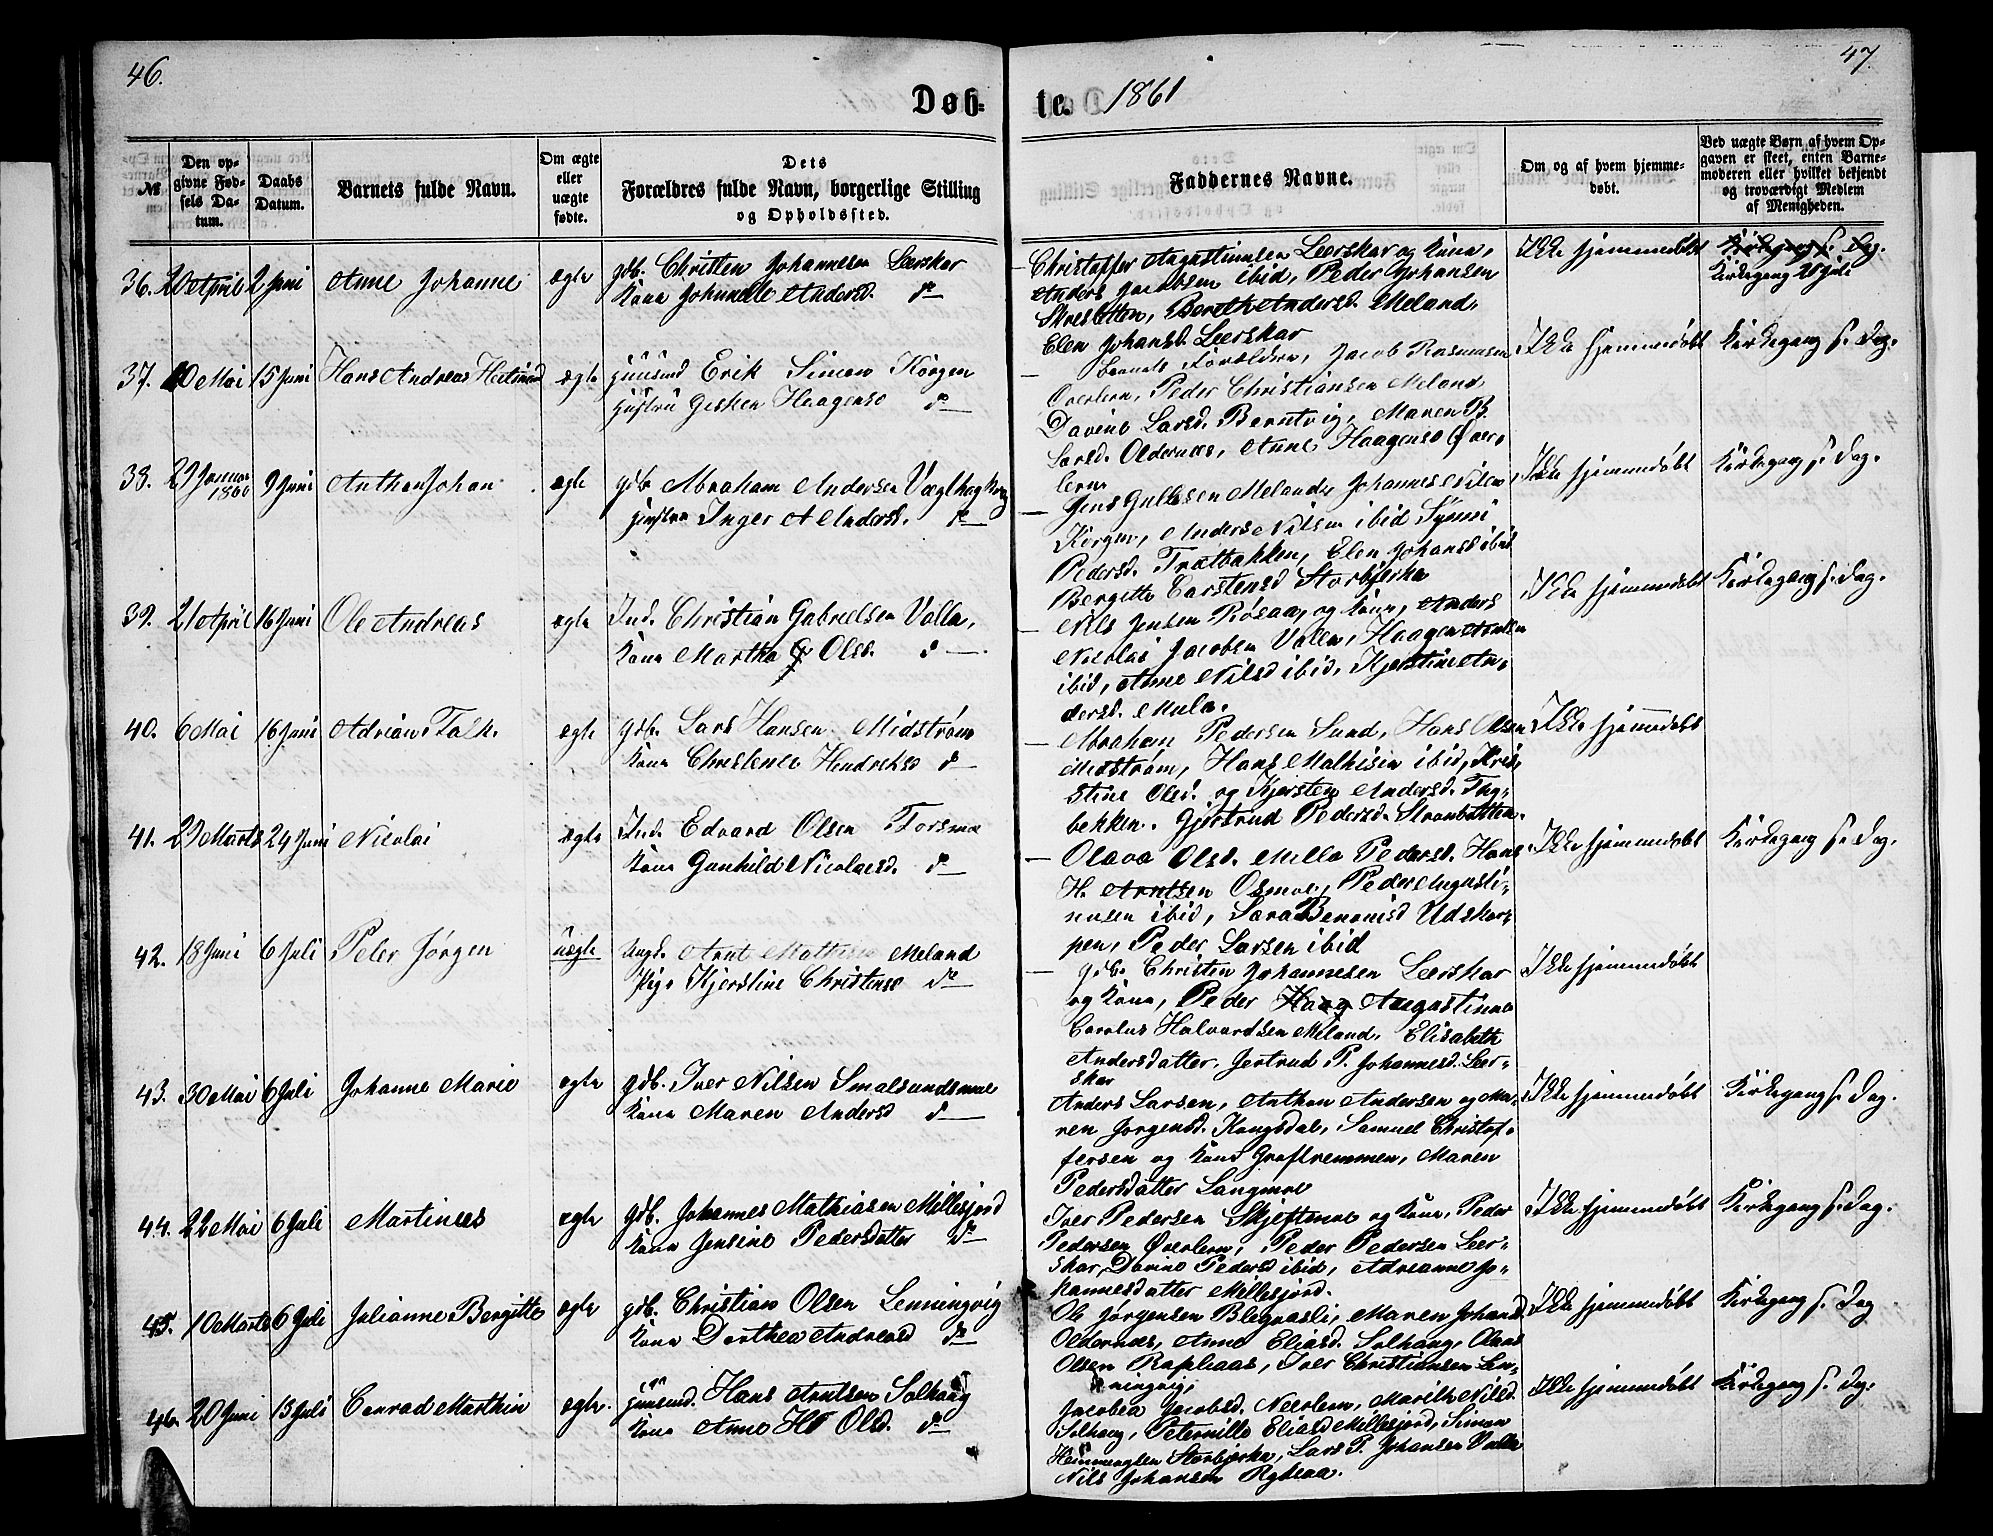 46.
47.
Døb-
te. 1861
№
Den op-
givne Fød-
sels Da-
tum.
Daabs
Datum.
Barnets fulde Navn.
Om ægte
eller
uægte
fødte.
Dets
Forældres fulde Navn, borgerlige Stilling
og Opholdssted.
Faddernes Navne.
Om og af hvem hjemme-
døbt.
Ved uægte Børn af hvem Op-
gaven er skeet, enten Barne-
moderen eller hvilket bekjendt
og troværdigt Medlem
af Menigheden.
36. 20 April 2 Juni Anne Johanne ægte gdb. Christen Johannesen Leerskar
Kone Johanne Andersd. do
Christopher Augustinusen Leerskar og Kone,
Anders Jacobsen ibid, Peder Johansen
Skresletten, Bereth Andersd. Meland,
Elen Johansd. Leerskar
Ikke hjemmedøbt
Kirkegang s. Dag.
Kirkegang 28 Juli
37. 10 Mai 15 Juni Hans Andreas ægte Huusmd Erik Simon Korgen
Hustru Gesken Haagensd do
Barnets Forældre, Jacob Rasmusen
Øverlern, Peder Christiansen Meland,
Davine Larsd. Berntvig, Maren B.
Larsd. Oldernæs, Anne Haagensd Øver-
lern
Ikke hjemmedøbt Kirkegang s. Dag.
38. 29 Januar 1860 9 Juni Anthon Johan ægte gdb Abraham Andersen
Hustru Inger A Andersd. do
Jens Gullesen Meland, Johannes Nilsen
Korgen, Anders Nilsen ibid
Pedersd. Trætbakken, Elen Johansd ibid
Bergitte Carstensd Storbjerka
Ikke hjemmedøbt Kirkegang s. Dag.
39. 21 April 16 Juni Ole Andreas ægte Ind. Christian Gabrielsen Valla,
Kone Martha Olsd. do
Nils Jensen Røsaa, og Kone, Anders
Nicolai Jacobsen Valla, Haagen
ibid, Anne Nilsd ibid, Kjerstine An-
dersd. Mula.
Ikke hjemmedøbt Kirkegang s. Dag.
40. 6 Mai 16 Juni Adrian Falk. ægte gdb. Lars Hansen Midstrøm
Kone Christence Hendriksd do
Abraham Pedersen Sund, Hans Olsen
Midstrøm, Hans Mathisen ibid, Kri-
stine Olsd. og Kjersten Andersd. Tag-
bekken. Gjertrud Pedersd.
Ikke hjemmedøbt
41. 29 Marts 24 Juni Nicolai ægte Ind. Edvard Olsen Forsmo
Kone Gunhild Nicolaisd. do
Olava Olsd. Pedersd. Hans
H. Arntsen Osmoe, Peder Augusti-
nusen ibid, Sara Benonisd Udskar-
pen, Peder Larsen ibid
Ikke hjemmedøbt Kirkegang s. Dag.
42. 18 Juni 6 Juli Peter Jørgen uægte Ungk. Arnt Mathisen Meland
Pige Kjerstine Christensd do
gdb. Christen Johannesen Leerskar
og Kone, Peder Haag Augustinus
Carolus Halvardsen Meland, Elisabeth
Andersdatter, Gertrud P. Johannesd. Leer-
skar
Ikke hjemmedøbt
43. 30 Mai 6 Juli Johanne Marie ægte gdb. Iver Nilsen Smalsundsmoe
Kone Maren Andersd do
Anders Larsen, Anthon Andersen og Ma-
ren Jørgensd. Kongsdal, Samuel Christof-
fersen og Kone Graftremmen, Maren
Pedersdatter Langmoe
Ikke hjemmedøbt Kirkegang s. Dag.
44. 22 Mai 6 Juli Martinus ægte gdb. Johannes Mathiasen Millesjord
Kone Jensine Pedersdatter do
Iver Pedersen Skjeftemoe og Kone, Peder
Pedersen Øverlern, Peder Pedersen Leer-
skar, Davine Pedersd ibid, Adrianne Jo-
hannesdatter Millesjord.
Ikke hjemmedøbt Kirkegang s. Dag.
45. 10 Marts 6 Juli Julianne Bergitte ægte gdb. Christian Olsen Lenningvig
Kone Dorthea Andreasd do
Ole Jørgensen Blegrasli, Maren Johansd
Oldernæs, Anne Eliasd. Solhaug, Olaus
Olsen Raphaas, Iver Christiansen Len-
ningvig,
Ikke hjemmedøbt Kirkegang s. Dag
46. 20 Juni 15 Juli Conrad Marthin ægte. Huusmd. Hans Arntsen Solhaug
Kone Anne Olsd. do
Jacobea Jacobsd. Neerlern, Marith Nilsd.
Solhaug, Peternille Eliasd Millesjord, Simon
Hemmingsen Storbjerka, Lars P. Johansen Valla
Nils Johansen
Ikke hjemmedøbt Kirkegang s. Dag.